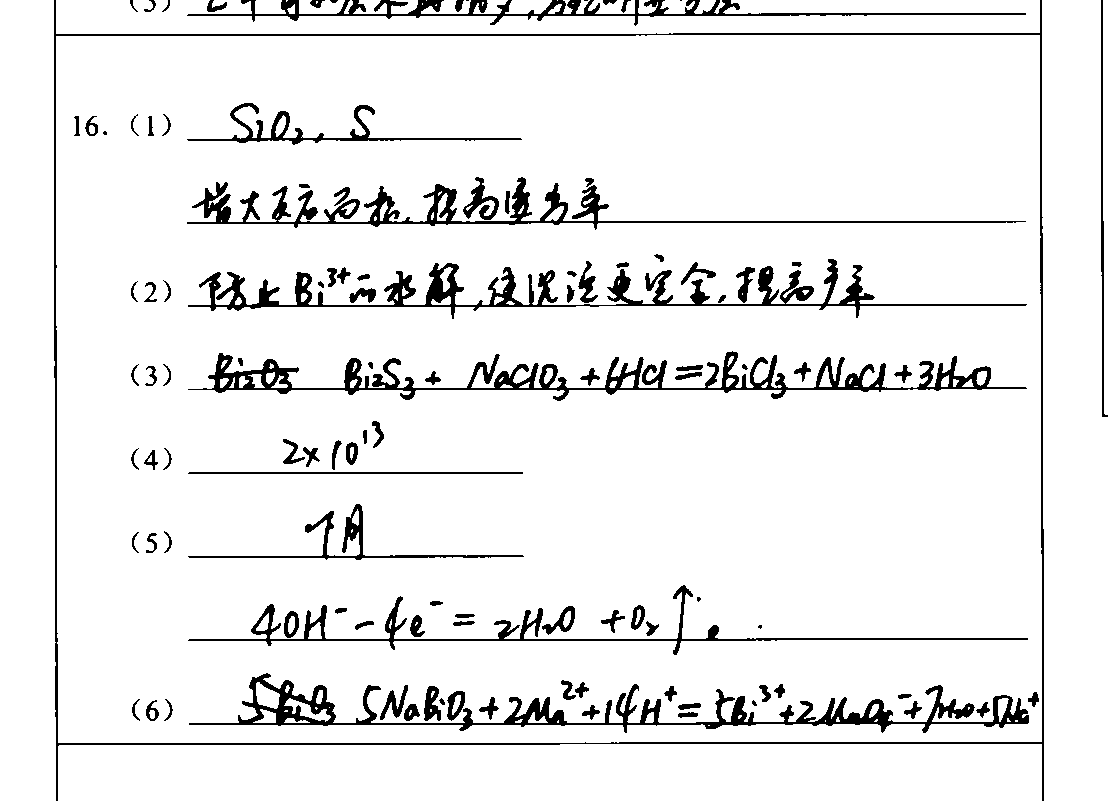 (3)
16. (1) SiO₂, S
增大反应面积, 提高速率
(2) 防止Bi³⁺的水解, 使沉淀更完全, 提高产率
(3) Bi₂S₃ + NaClO₃ + 6HCl = 2BiCl₃ + NaCl + 3H₂O
(4) 2×10¹³
(5)
4OH⁻ - 4e⁻ = 2H₂O + O₂↑。
(6) 5NaBiO₃ + 2Mn²⁺ + 14H⁺ = 5Bi³⁺ + 2MnO₄⁻ + 7H₂O + 5Na⁺